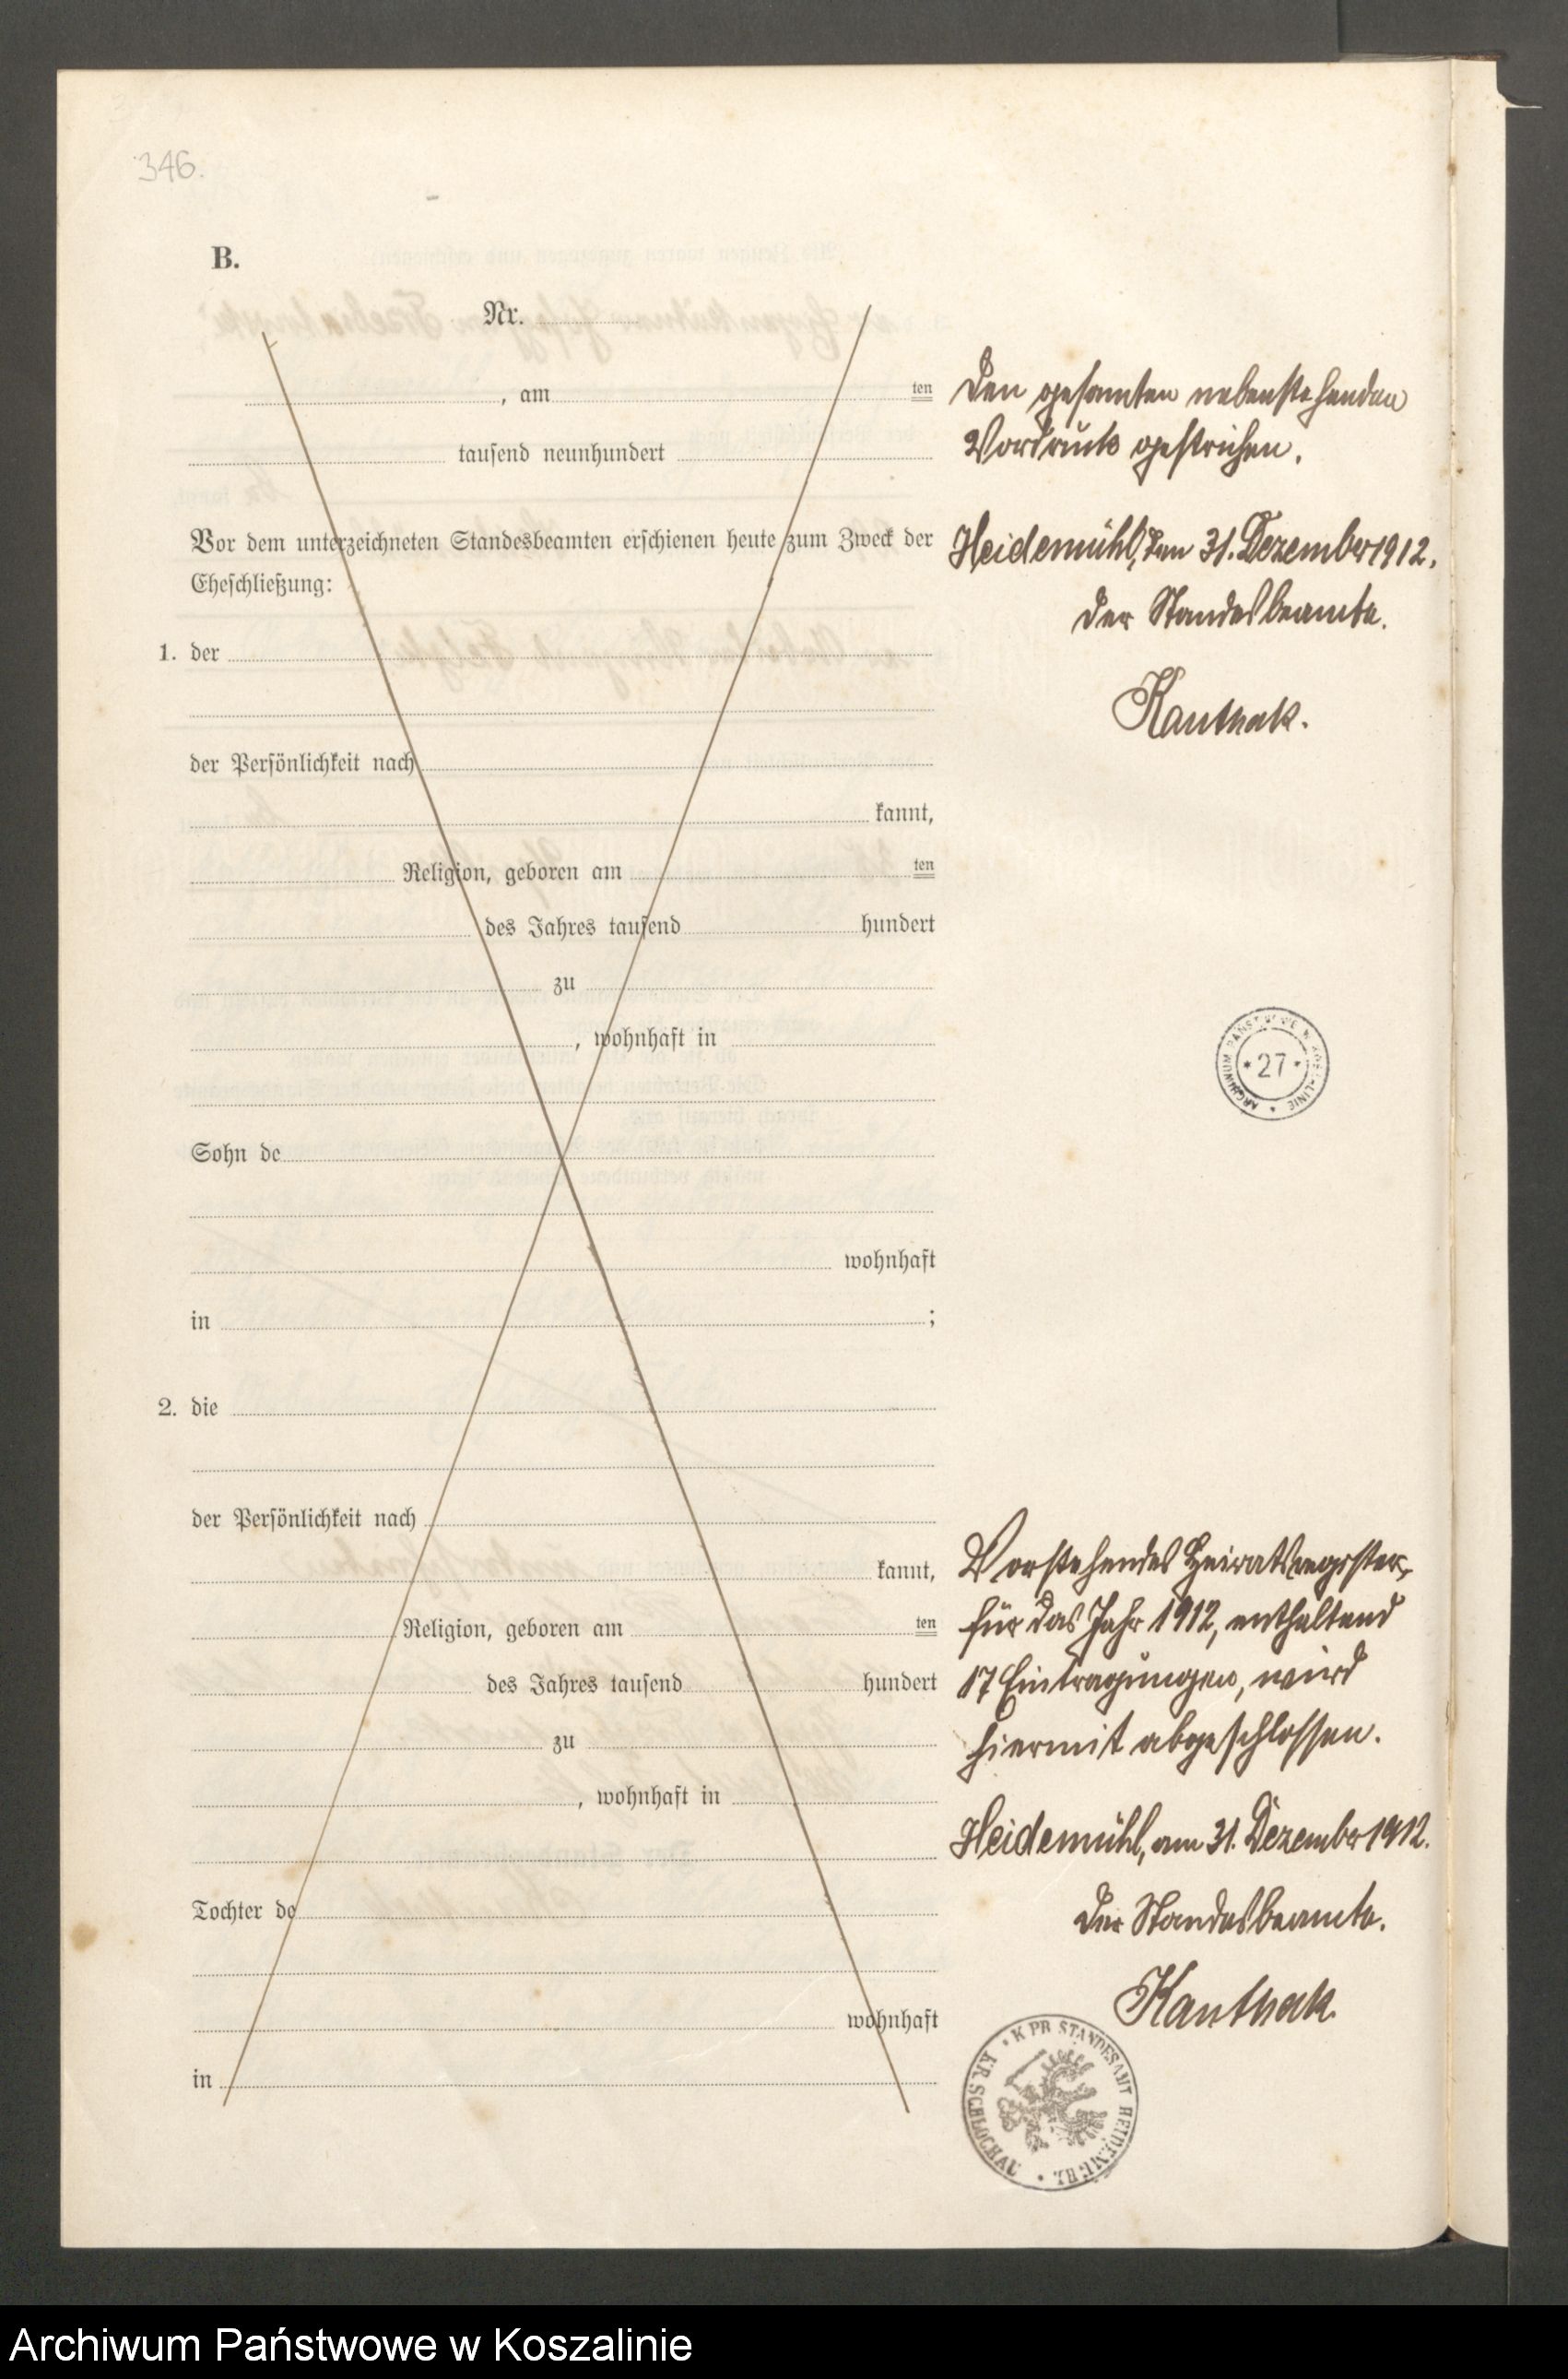 346.
B.
Nr.
, am ten
tausend neunhundert
Vor dem unterzeichneten Standesbeamten erschienen heute zum Zweck der
Eheschließung:
1. der
der Persönlichkeit nach
kannt,
Religion, geboren am ten
des Jahres tausend hundert
zu
, wohnhaft in
Sohn de
wohnhaft
in ;
2. die
der Persönlichkeit nach
kannt,
Religion, geboren am ten
des Jahres tausend hundert
zu
, wohnhaft in
Tochter de
wohnhaft
in
Den gesamten nebenstehenden
Vordruck gestrichen.
Heidemühl, den 31. Dezember 1912.
Der Standesbeamte.
Kanthak.
ARCHIWUM PAŃSTWOWE W KOSZALINIE
* 27 *
Vorstehendes Heiratsregister,
für das Jahr 1912, enthaltend
17 Eintragungen, wird
hiermit abgeschlossen.
Heidemühl, am 31. Dezember 1912.
Der Standesbeamte.
Kanthak.
K. PR. STANDESAMT HEIDEMÜHL
KR. SCHLOCHAU
Archiwum Państwowe w Koszalinie